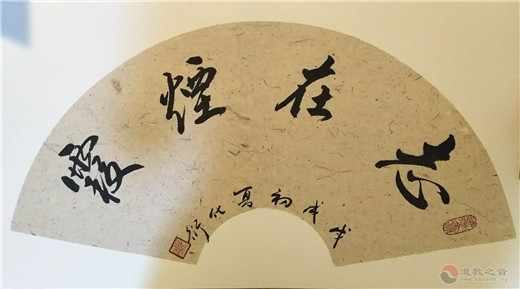 志在煙霞
戊戌初夏
道教之音